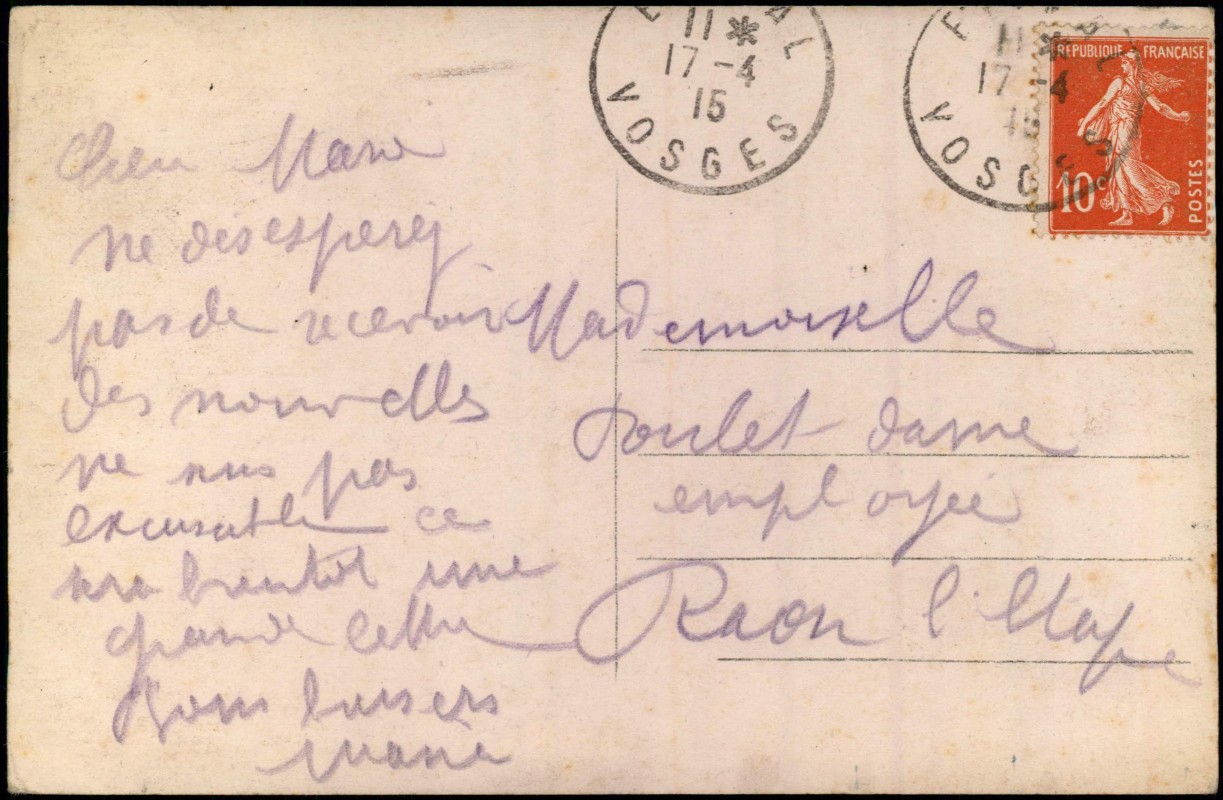 11 *
17 -4
15
VOSGES
11 *
17 -4
VOSGES
RÉPUBLIQUE FRANÇAISE
10c
POSTES
ne désesperez
pas de recevoir
des nouvelles
ne suis pas
excusable ce
sera bientôt une
grande lettre
Bons baisers
Maria
Mademoiselle
dame
employée
Raon l'Etape